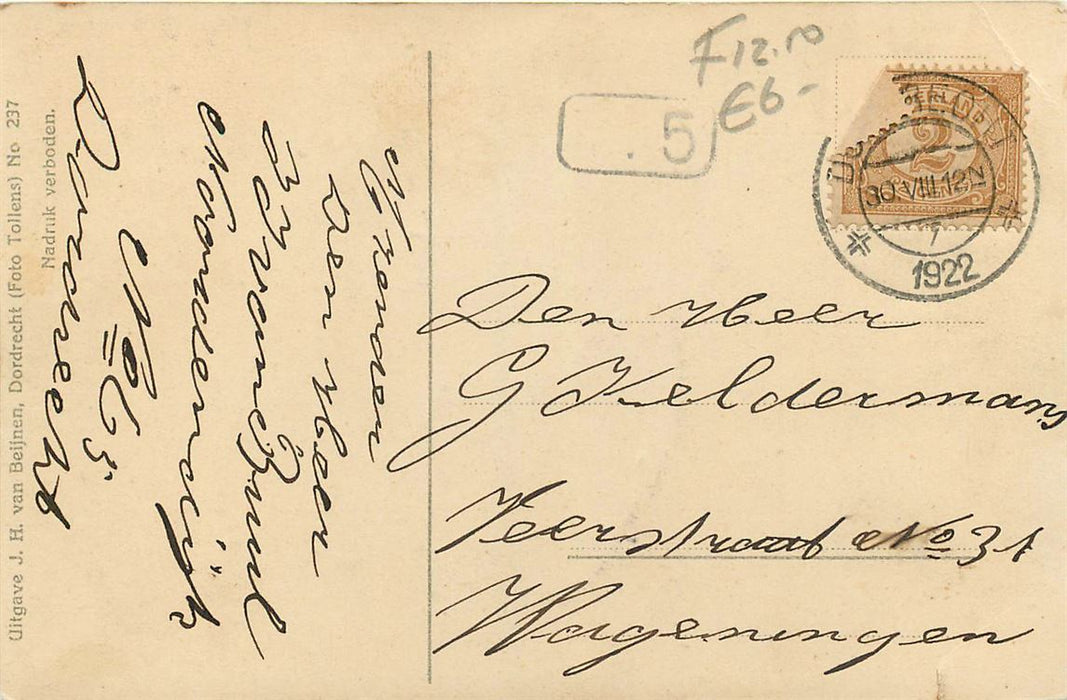 Uitgave J. H. van Beijnen, Dordrecht (Foto Tollens) No 237
Nadruk verboden.
Afzender
Den Heer
Noordendijk
No
Dordrecht
F12.50
€6-
. 5
2
30 VIII.12N
1922
Den Heer
G Keldermans
Veerstraat No 31
Wageningen